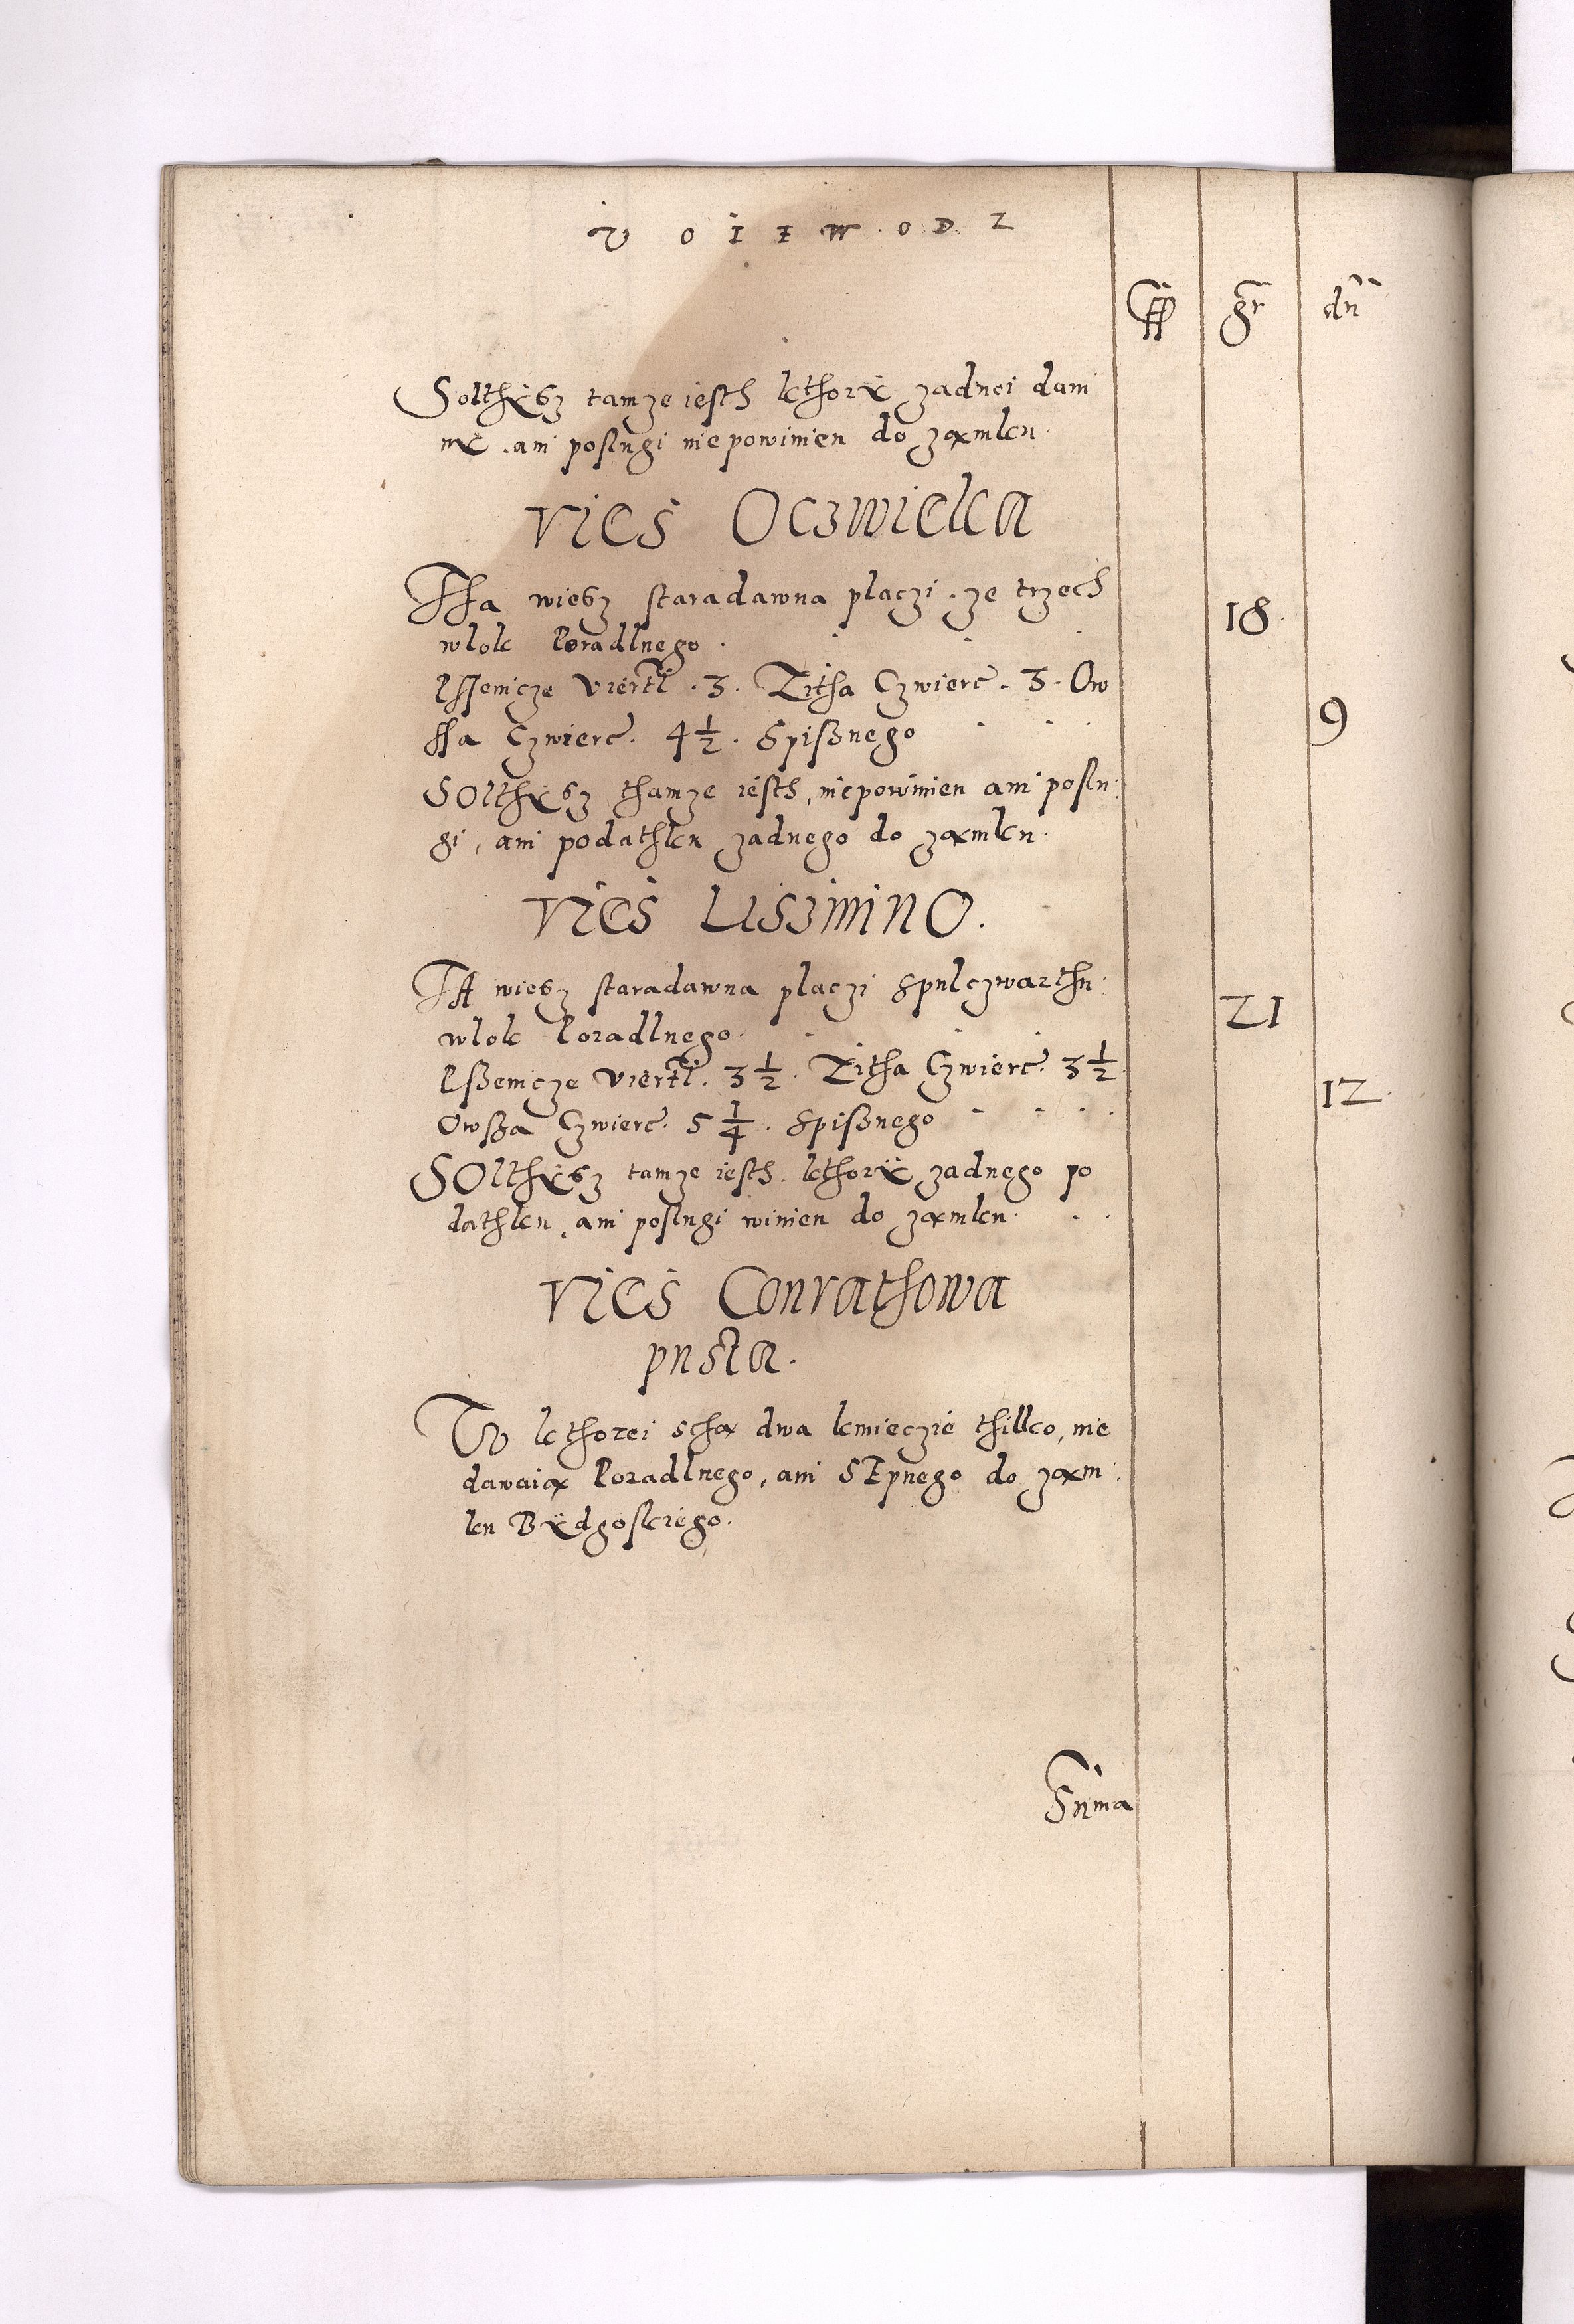 V O I E W O D Z
ff gr dn
Solthÿsz tamze iesth kthorÿ zadnei dani
nÿ. ani poslugi niepowinien do zamku.
VIES Oczwieka
Tha wiesz staradawna placzi. ze trzech
wlok Poradlnego. 18.
Pssenicze Viertl. 3. Zitha Czwierc. 3. Ow
ssa Czwierc. 4 1/2. Spisznego 9
SOlthÿsz thamze iesth, niepowinien ani poslu
gi, ani podathku zadnego do zamku.
VIES Liszinino.
TA wiesz staradawna placzi spulczwarthu
wlok Poradlnego. 21
Pszenicze Viertl. 3 1/2. Zitha Czwierc. 3 1/2.
Owsza Czwierc. 5 1/4. Spisznego 12.
SOlthÿsz tamze iesth. kthorÿ zadnego po
dathku, ani poslugi winien do zamku.
VIES Conrathowa
pusta.
W kthorei scha dwa kmieczie thilko, nie
dawaia Poradlnego, ani SEpnego do zam
ku Bÿdgoskiego.
Suma